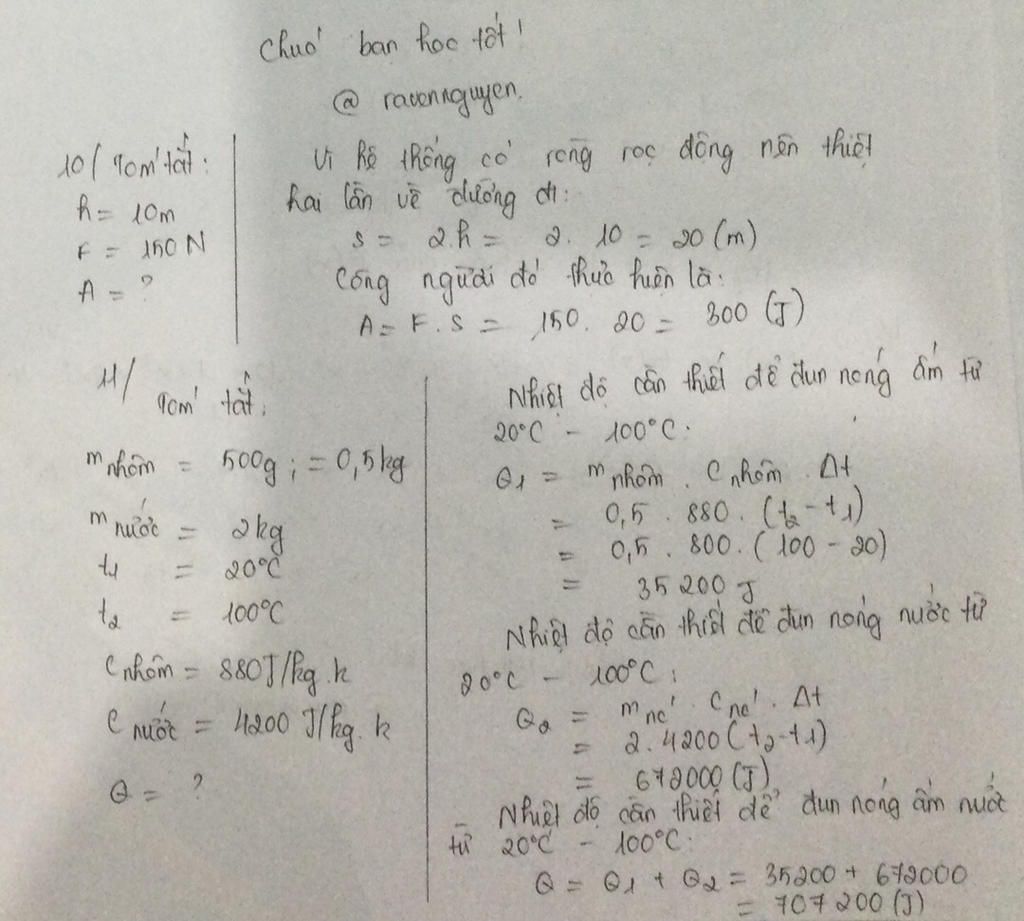 Chuó bạn học tốt!
@ ravennguyen.
10/ Tóm tắt:
h = 10m
F = 150 N
A = ?
Vì hệ thống có ròng rọc động nên thiệt
hai lần về đường đi:
s = 2.h = 2. 10 = 20 (m)
Công người đó thực hiện là:
A = F. S = 150. 20 = 300 (J)
11/
Tóm tắt:
m nhôm = 500g ; = 0,5kg
m nước = 2kg
t1 = 20°C
t2 = 100°C
C nhôm = 880J/kg.k
C nước = 4200 J/kg.k
Q = ?
Nhiệt độ cần thiết để đun nóng ấm từ
20°C - 100°C:
Q1 = m nhôm . C nhôm . Δt
= 0,5 . 880. (t2 - t1)
= 0,5 . 800. (100 - 20)
= 35 200 J
Nhiệt độ cần thiết để đun nóng nước từ
20°C - 100°C:
Q2 = m nc' . C nc' . Δt
= 2.4200(t2-t1)
= 672000 (J)
Nhiệt độ cần thiết để đun nóng ấm nước
từ 20°C - 100°C:
Q = Q1 + Q2 = 35200 + 672000
= 707 200 (J)